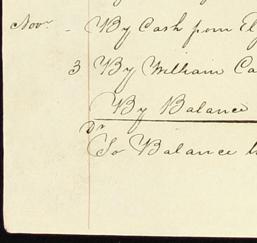 Novr - By Cash from
3 By William
By Balance
Dr
To Balance